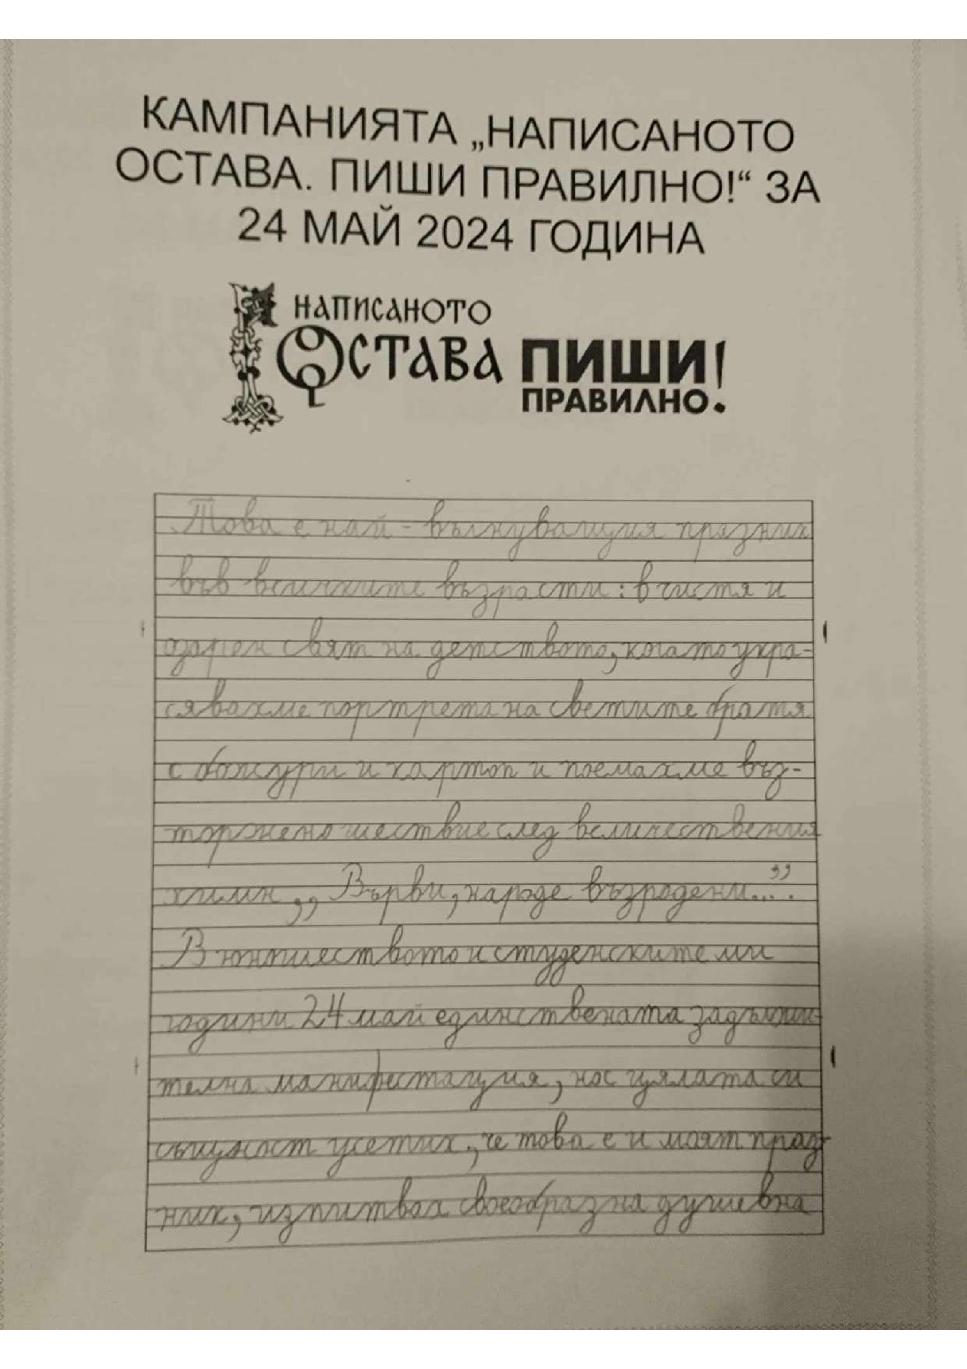 КАМПАНИЯТА „НАПИСАНОТО
ОСТАВА. ПИШИ ПРАВИЛНО!“ ЗА
24 МАЙ 2024 ГОДИНА
НАПИСАНОТО
ОСТАВА ПИШИ
ПРАВИЛНО!
Това е най-вълнуващия празник
във всичките възрасти: в чистя и
озарен свят на детството, когато укра-
сявахме портрета на светите братя
с божури и картоп и поемахме въз-
торжено шествие след величествения
химн „Върви, народе възродени...”.
В юншеството и студенските ми
години 24 май единствената задължи-
телна манифестация, нос цялата си
същност усетих, че това е и моят праз-
ник, изпитвах своеобразна душевна